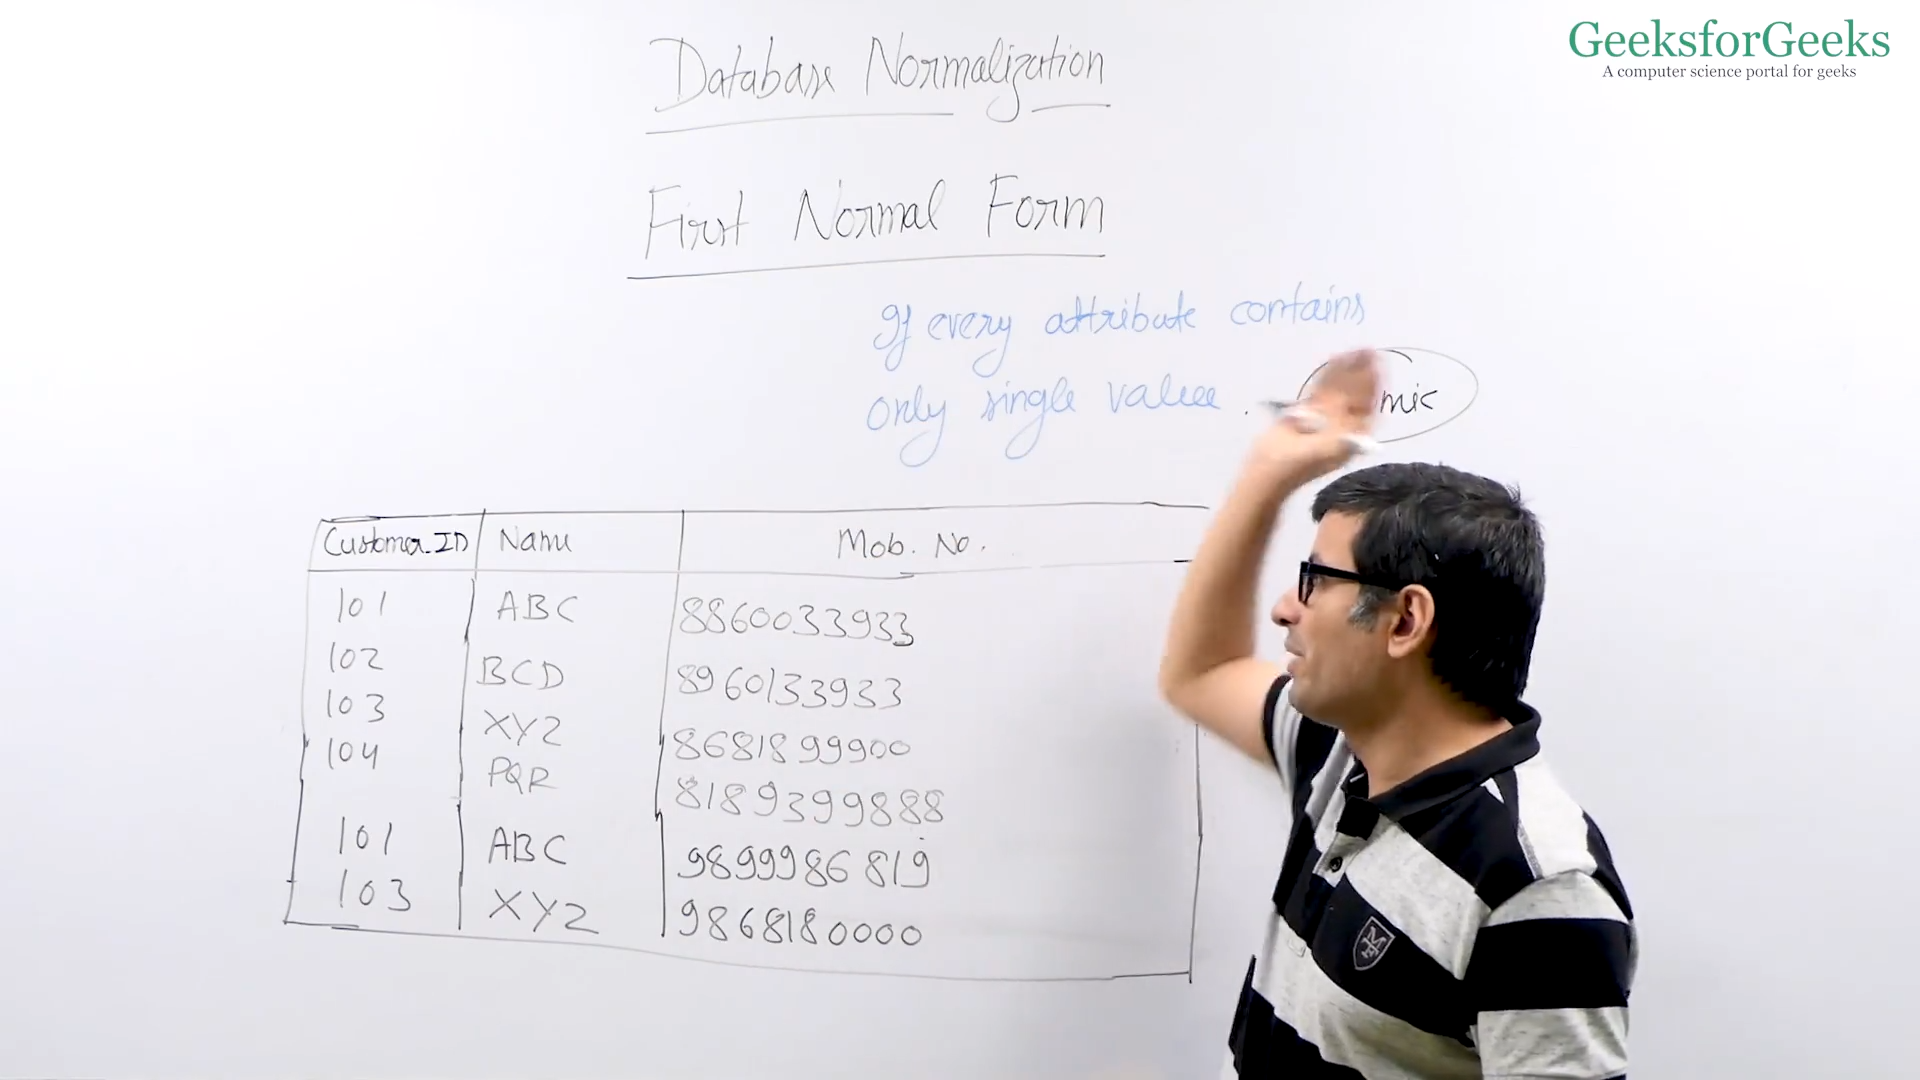 GeeksforGeeks
A computer science portal for geeks
Database Normalization
First Normal Form
If every attribute contains
only single value.
Customer_ID Name Mob. No.
101 ABC 8860033933
102 BCD 8960133933
103 XYZ 8681899900
104 PQR 8189399888
101 ABC 9899986819
103 XYZ 9868180000